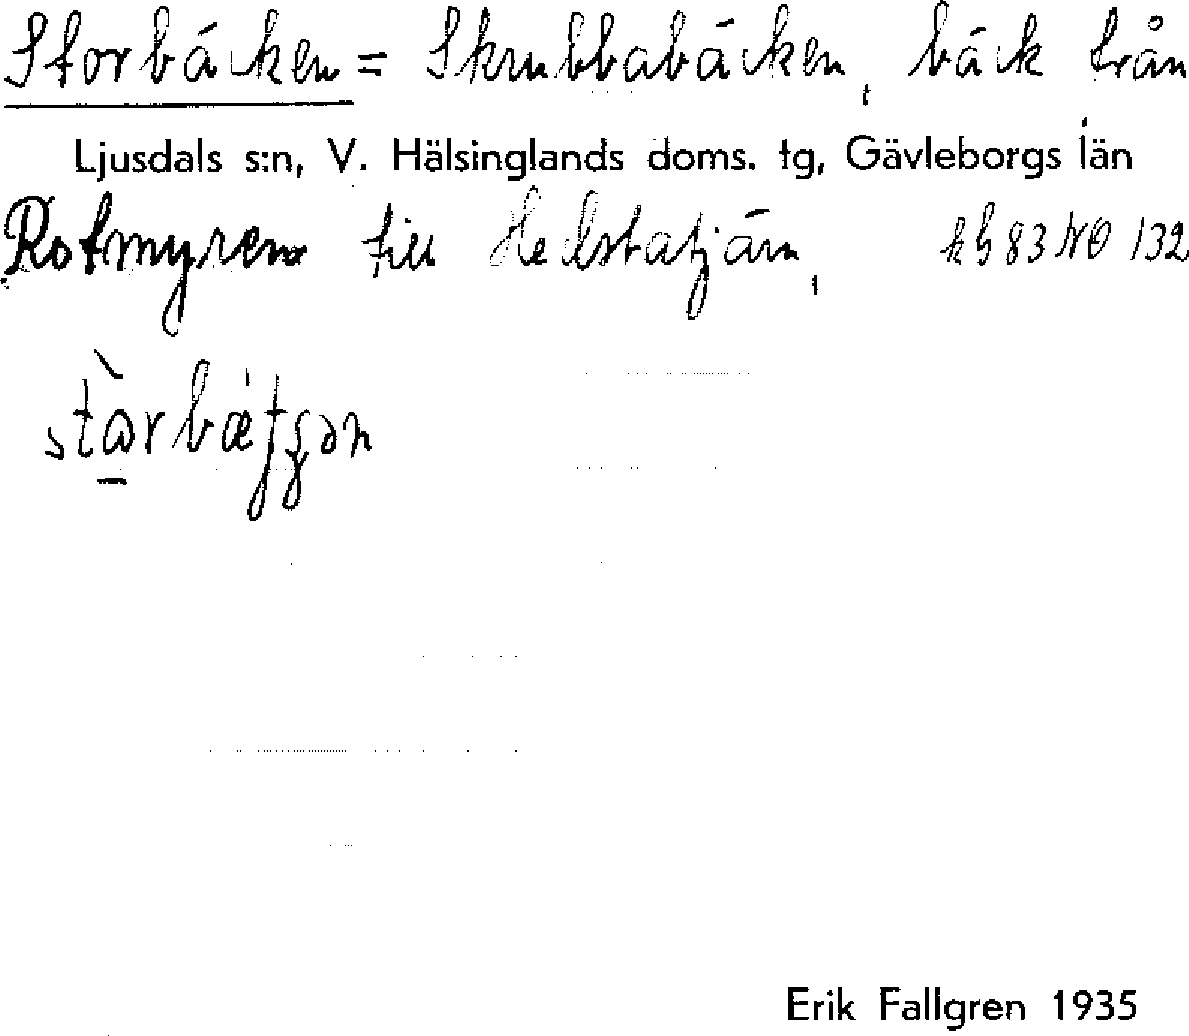 Storbäcken = Skrubbabäcken, bäck från
Ljusdals s:n, V. Hälsinglands doms. tg, Gävleborgs län
Rotmyren till Helstatjärn, kb 83 NO 132
Erik Fallgren 1935